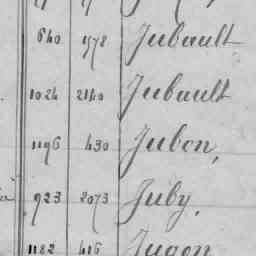 640 1578 Jubault
1024 2140 Jubault
1196 430 Jubon,
923 2073 Juby,
1182 416 Jugon